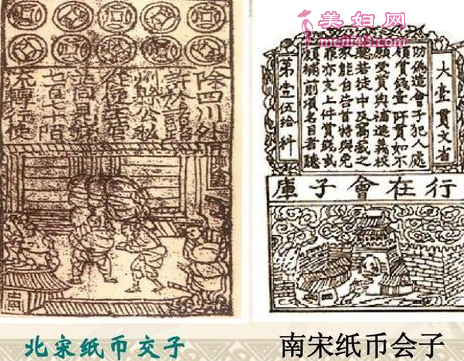 美妇网
meifu43.com
除四川外
許於諸路
州縣公私
從便主管
並同見錢
七百七十陌
流轉行使
大壹貫文省
敕偽造會子犯人處
斬賞錢壹阡貫如不
願支賞與補進義校
尉若徒中及窩藏之
家能自告首特與免
罪亦支上件賞錢或
願補前項名目者聽
第壹伯拾料
行在會子庫
北宋纸币交子
南宋纸币会子